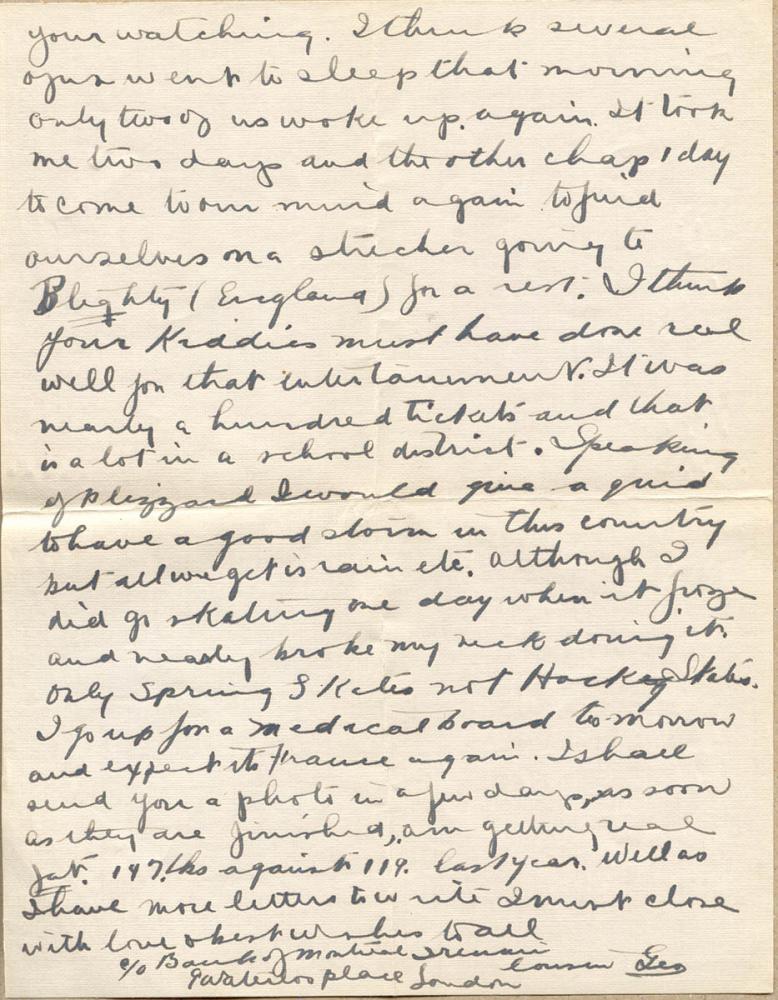 your watching. I think several
of us went to sleep that morning
only two of us woke up again. It took
me two days and the other chap 1 day
to come to our mind again to find
ourselves on a strecher going to
Blighty (England) for a rest. I think
your Kiddies must have done real
well for that entertainment. It was
nearly a hundred tickets and that
is a lot in a school district. Speaking
of blizzard I would give a quid
to have a good storm in this country
but all we get is rain etc. Although I
did go skating one day when it froze
and nearly broke my neck doing it.
Only Spring Skates not Hockey Skates.
I go up for a medical board tomorrow
and expect its France again. I shall
send you a photo in a few days, as soon
as they are finished, am getting real
fat. 147 lbs against 119. last year. Well as
I have more letters to write I must close
with love & best wishes to all
I remain
c/o Bank of Montreal
Cousin Geo
Waterloo place London